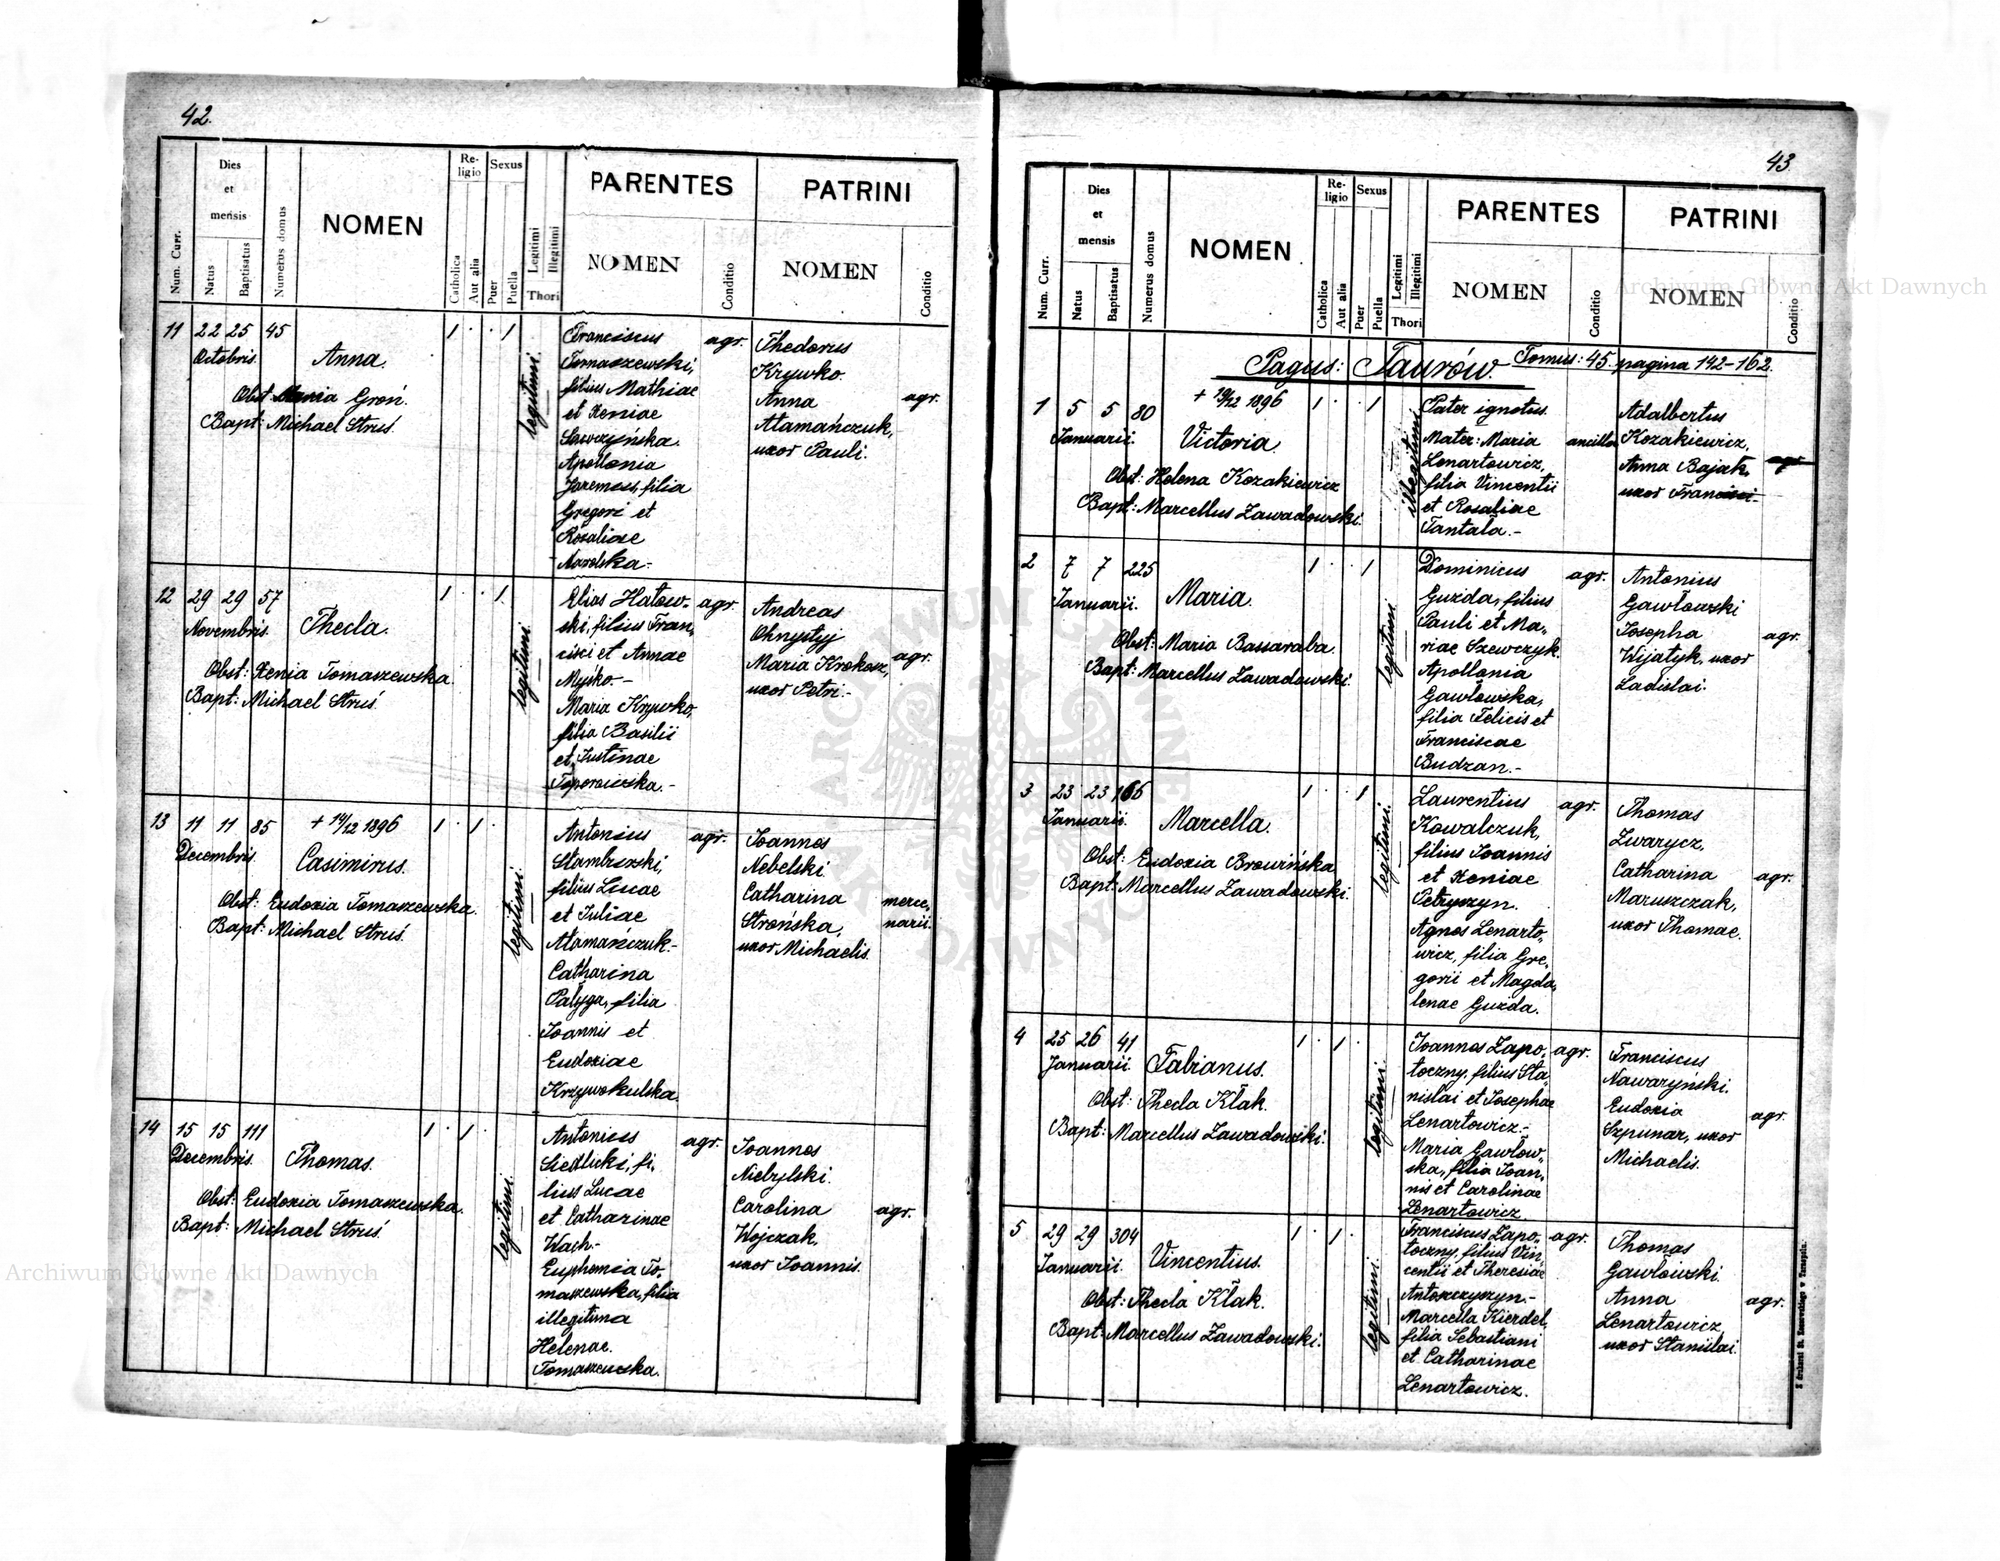 42.
Num. Curr.
Dies
et
mensis
Natus
Baptisatus
Numerus domus
NOMEN
Re-
ligio
Catholica
Aut alia
Sexus
Puer
Puella
Legitimi
Illegitimi
Thori
PARENTES
NOMEN
Conditio
PATRINI
NOMEN
Conditio
11 22 25 45
Octobris.
Anna.
Obst: Xenia Groń.
Bapt: Michael Struś.
1 . . 1
legitimi.
Franciscus
Tomaszewski,
filius Mathiae
et Xeniae
Sawczyńska.
Apollonia
Jaremus, filia
Gregorii et
Rosaliae
Nawolska.-
agr.
Thedorus
Krywko.
Anna
Atamańczuk,
uxor Pauli.
agr.
12 29 29 57
Novembris.
Thecla.
Obst: Xenia Tomaszewska.
Bapt: Michael Struś.
1 . . 1
legitimi.
Elias Hatow-
ski, filius Fran-
cisci et Annae
Myśko.-
Maria Krywko,
filia Basilii
et Justinae
Toporowska.-
agr.
Andreas
Ohnystyj
Maria Krokosz,
uxor Petri.-
agr.
13 11 11 85
Decembris.
+ 14/12 1896
Casimirus.
Obst: Eudoxia Tomaszewska.
Bapt: Michael Struś.
1 . 1 .
legitimi.
Antonius
Stambrowski,
filius Lucae
et Juliae
Atamańczuk.-
Catharina
Pałyga, filia
Joannis et
Eudoxiae
Krzywokulska.
agr.
Joannes
Nebelski
Catharina
Strońska,
uxor Michaelis.
merce-
narii.
14 15 15 111
Decembris.
Thomas.
Obst: Eudoxia Tomaszewska.
Bapt: Michael Struś.
1 . 1 .
legitimi.
Antonius
Siedlicki, fi-
lius Lucae
et Catharinae
Wach.-
Euphemia To-
maszewska, filia
illegitima
Helenae
Tomaszewska.
agr.
Joannes
Niebylski.
Carolina
Wojczak,
uxor Joannis.
agr.
43
Num. Curr.
Dies
et
mensis
Natus
Baptisatus
Numerus domus
NOMEN
Re-
ligio
Catholica
Aut alia
Sexus
Puer
Puella
Legitimi
Illegitimi
Thori
PARENTES
NOMEN
Conditio
PATRINI
NOMEN
Conditio
Pagus: Taurów. Tomus: 45. pagina 142-162.
1 5 5 80
Januarii.
+ 19/12 1896
Victoria.
Obst: Helena Kozakiewicz
Bapt: Marcellus Zawadowski.
1 . . 1
illegitimi.
Pater ignotus.
Mater: Maria
Lenartowicz,
filia Vincentii
et Rosaliae
Tantała.-
ancilla
Adalbertus
Kozakiewicz,
Anna Bajak,
uxor Francisci.-
agr.
2 7 7 225
Januarii.
Maria.
Obst: Maria Bassaraba.
Bapt: Marcellus Zawadowski.
1 . . 1
legitimi.
Dominicus
Guzda, filius
Pauli et Ma-
riae Szewczyk.
Apollonia
Gawłowska,
filia Felicis et
Franciscae
Budzan.-
agr.
Antonius
Gawłowski
Josepha
Wijatyk, uxor
Ladislai.
agr.
3 23 23 166
Januarii.
Marcella.
Obst: Eudoxia Browińska
Bapt: Marcellus Zawadowski.
1 . . 1
legitimi.
Laurentius
Kowalczuk,
filius Joannis
et Xeniae
Petryszyn.
Agnes Lenarto-
wicz, filia Gre-
gorii et Magda-
lenae Guzda.
agr.
Thomas
Zwarycz,
Catharina
Maruszczak,
uxor Thomae.
agr.
4 25 26 41
Januarii.
Fabianus.
Obst: Thecla Kłak.
Bapt: Marcellus Zawadowski.
1 . 1 .
legitimi.
Joannes Zapo-
toczny, filius Sta-
nislai et Josephae
Lenartowicz.-
Maria Gawłow-
ska, filia Joan-
nis et Carolinae
Lenartowicz
agr.
Franciscus
Nawaryński.
Eudoxia
Szpunar, uxor
Michaelis.
agr.
5 29 29 304
Januarii.
Vincentius.
Obst: Thecla Kłak.
Bapt: Marcellus Zawadowski.
1 . 1 .
legitimi.
Franciscus Zapo-
toczny, filius Vin-
centii et Theresiae
Antoszczyszyn.-
Marcella Kierdel,
filia Sebastiani
et Catharinae
Lenartowicz.
agr.
Thomas
Gawłowski
Anna
Lenartowicz
uxor Stanislai.
agr.
Z drukarni St. Kossowskiego w Tarnopolu.
Archiwum Główne Akt Dawnych
Archiwum Główne Akt Dawnych
ARCHIWUM GŁÓWNE AKT DAWNYCH